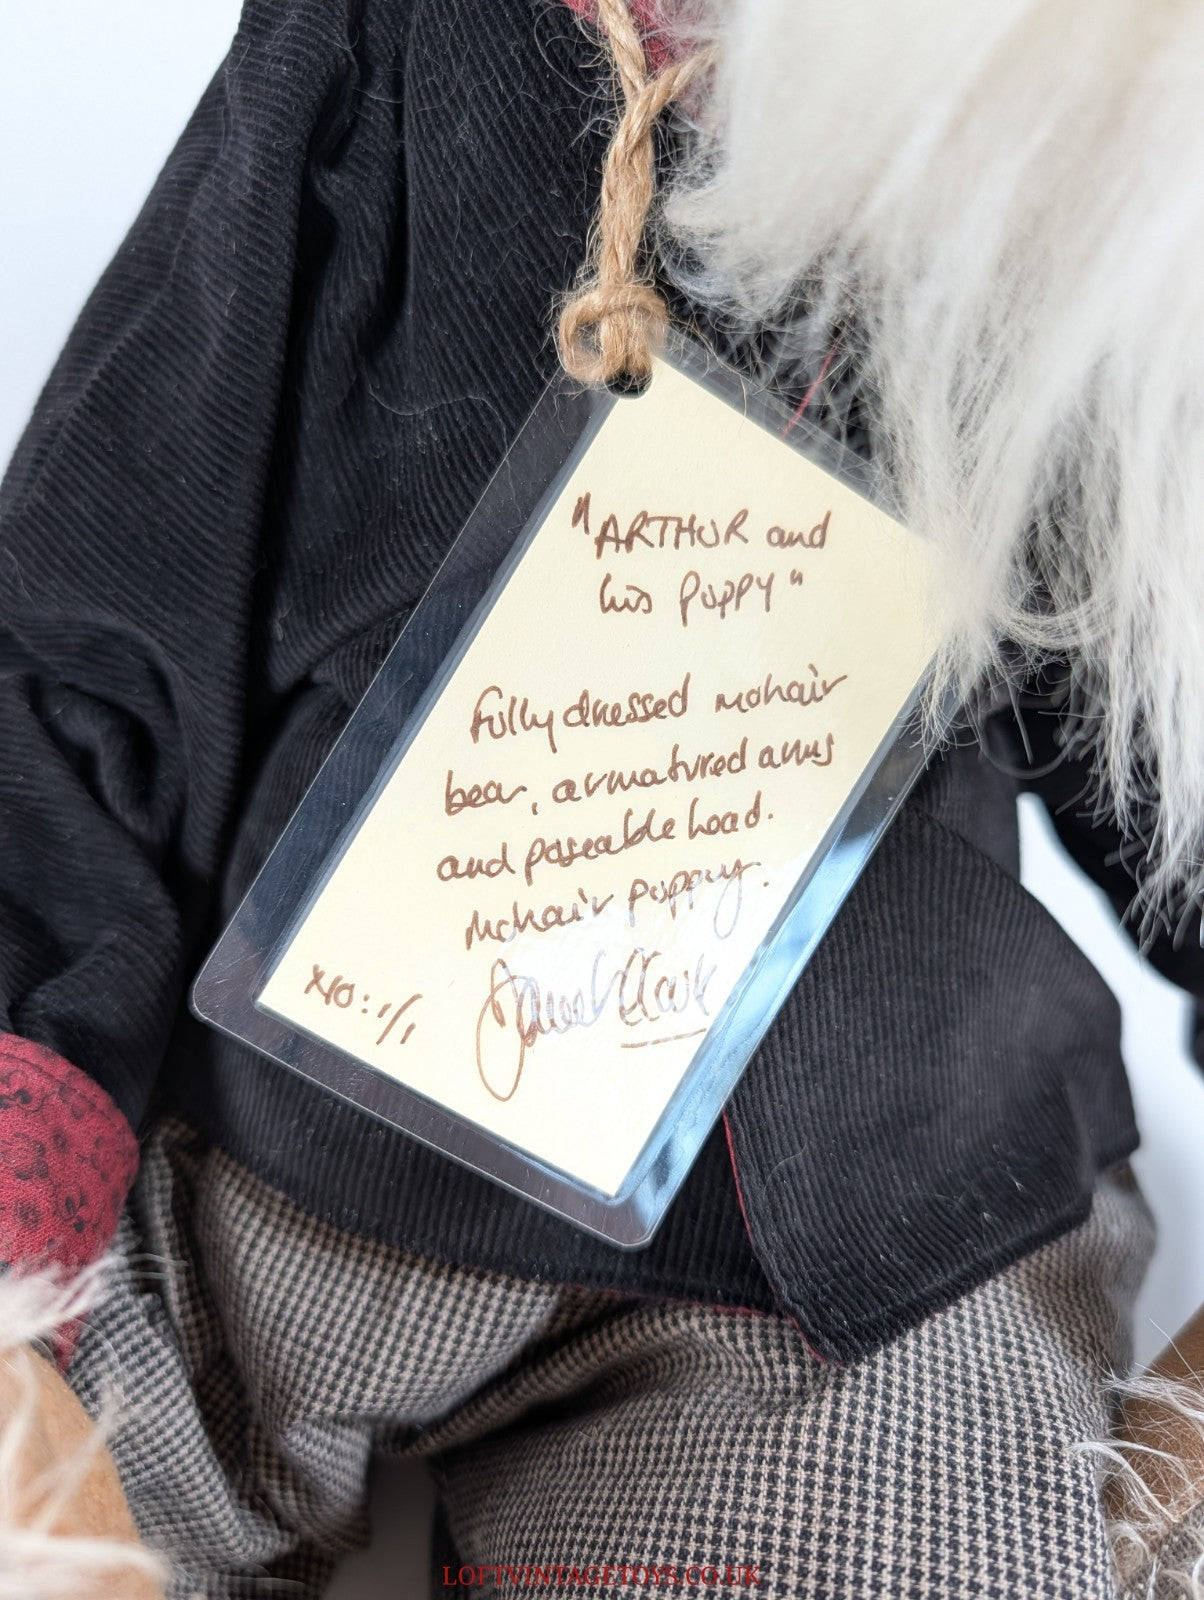 "ARTHUR and
his puppy"
Fully dressed mohair
bear, armatured arms
and poseable head.
Mohair puppy.
No: 1/1
Janet Clark
LOFTVINTAGETOYS.CO.UK